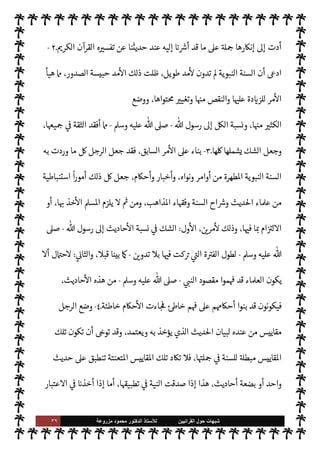 أدت إلى إنكارها جملة على ما قد أشرنا إليه عند حديثنا عن تفسيره القرآن الكريم.٢٠
ادعى أن السنة النبوية لم تدون لأمد طويل، ظلت ذلك الأمد حبيسة الصدور، مما هيأ
الأمر للزيادة عليها والنقص منها وتغيير محتواها، ووضع
الكثير منها، ونسبة الكل إلى رسول الله - صلى الله عليه وسلم - مما أفقد الثقة في جميعها،
وجعل الشك يشملها كلها.٣٠ بناء على الأمر السابق، فقد جعل الرجل كل ما وردت به
السنة النبوية المطهرة من أوامر ونواه، وأخبار وأحكام، جعل كل ذلك أموراً استنباطية
من علماء الحديث وشراح السنة وفقهاء المذاهب، ومن ثم لا يلزم المسلم الأخذ بها، أو
الالتزام بما فيها، وذلك لأمرين، الأول: الشك في نسبة الأحاديث إلى رسول الله - صلى
الله عليه وسلم - لطول الفترة التي تركت فيها بلا تدوين - كما بينا قبلا. والثاني: لاحتمال ألا
يكون العلماء قد فهموا مقصود النبي - صلى الله عليه وسلم - من هذه الأحاديث،
فيكونون قد بنوا أحكامهم على فهم خاطئ فجاءت الأحكام خاطئة.٤٠ وضع الرجل
مقاييس من عنده لبيان الحديث الذي يؤخذ به ويعتمد، وقد توخى أن تكون تلك
المقاييس مبطلة للسنة في جملتها، فلا تكاد تلك المقاييس المتعنتة تنطبق على حديث
واحد أو بضعة أحاديث، هذا إذا صدقت النية في تطبيقها، أما إذا أخذنا في الاعتبار
شبهات حول القرآنيين للأستاذ الدكتور محمود مزروعة ٣٩